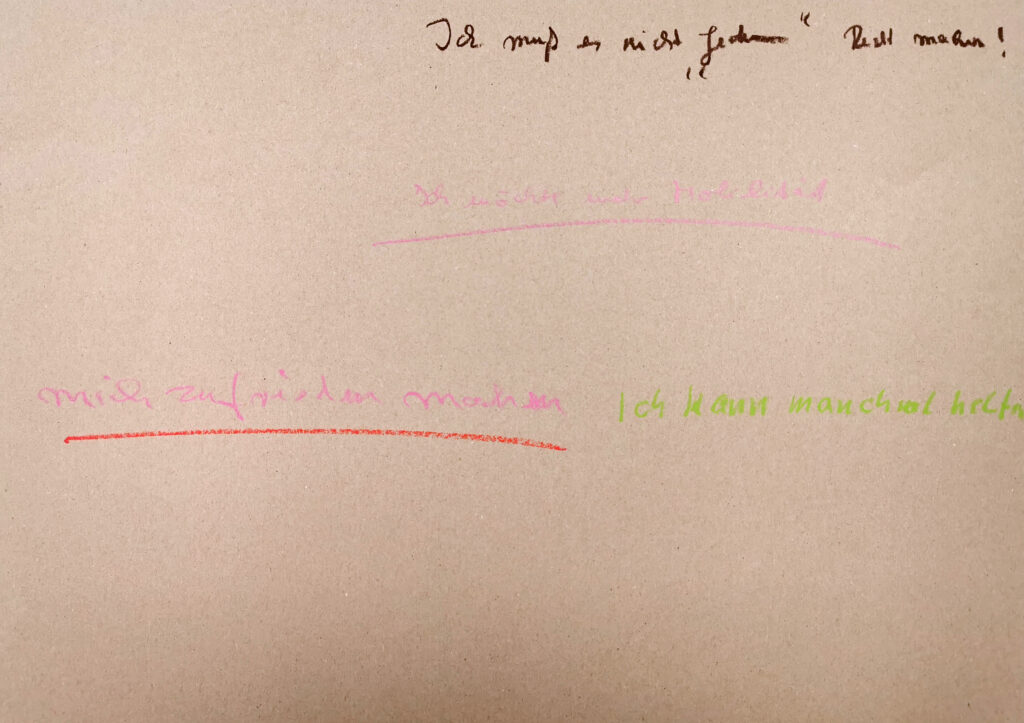 Ich muß es nicht „jedem“ Recht machen!
Ich möchte mehr Mobilität
mich zufrieden machen
Ich kann manchmal helfen